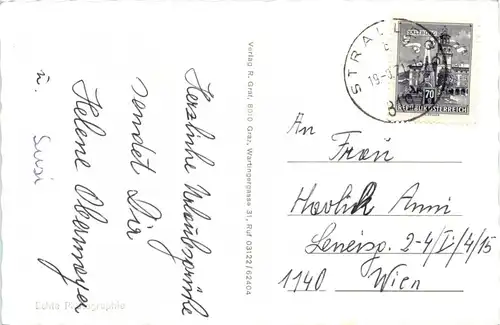 Herzliche Urlaubsgrüße
sendet Dir
Helene Obermayer
u. Susi
Echte Photographie
Verlag R. Graf, 8010 Graz, Wartingergasse 31, Ruf 03122/62404
STRALL
19.-8.
SALZBURG
70
REPUBLIK ÖSTERREICH
An
Frau
Havlik Anni
2-4/I/4/15
1140 Wien